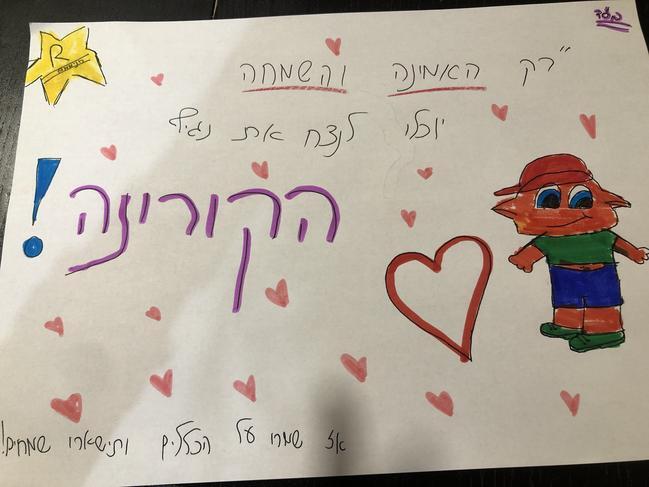 בס"ד
R
"רק האמונה והשמחה
יוכלו לנצח את נגיף
הקורונה!
אז שמרו על הכללים ותישארו שמחים!